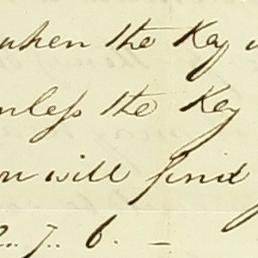 when the Key
nless the Key
n will find
7.. 6. —